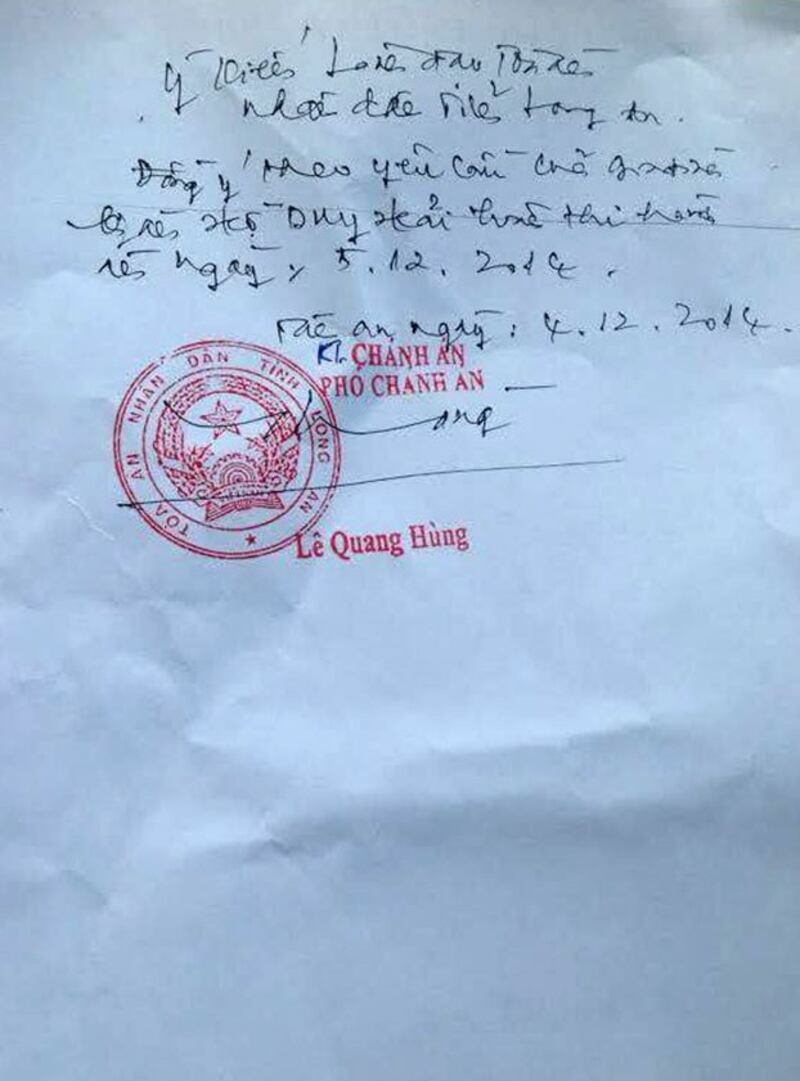 Ý kiến Lãnh đạo Tòa án
nhân dân tỉnh Long An.
Đồng ý theo yêu cầu của gia đình
bị án Hồ Duy Hải hoãn thi hành
án ngày 5.12.2014.
Tân An, ngày: 4.12.2014.
Kt. CHÁNH ÁN
PHÓ CHÁNH ÁN
TÒA ÁN NHÂN DÂN TỈNH LONG AN
Lê Quang Hùng